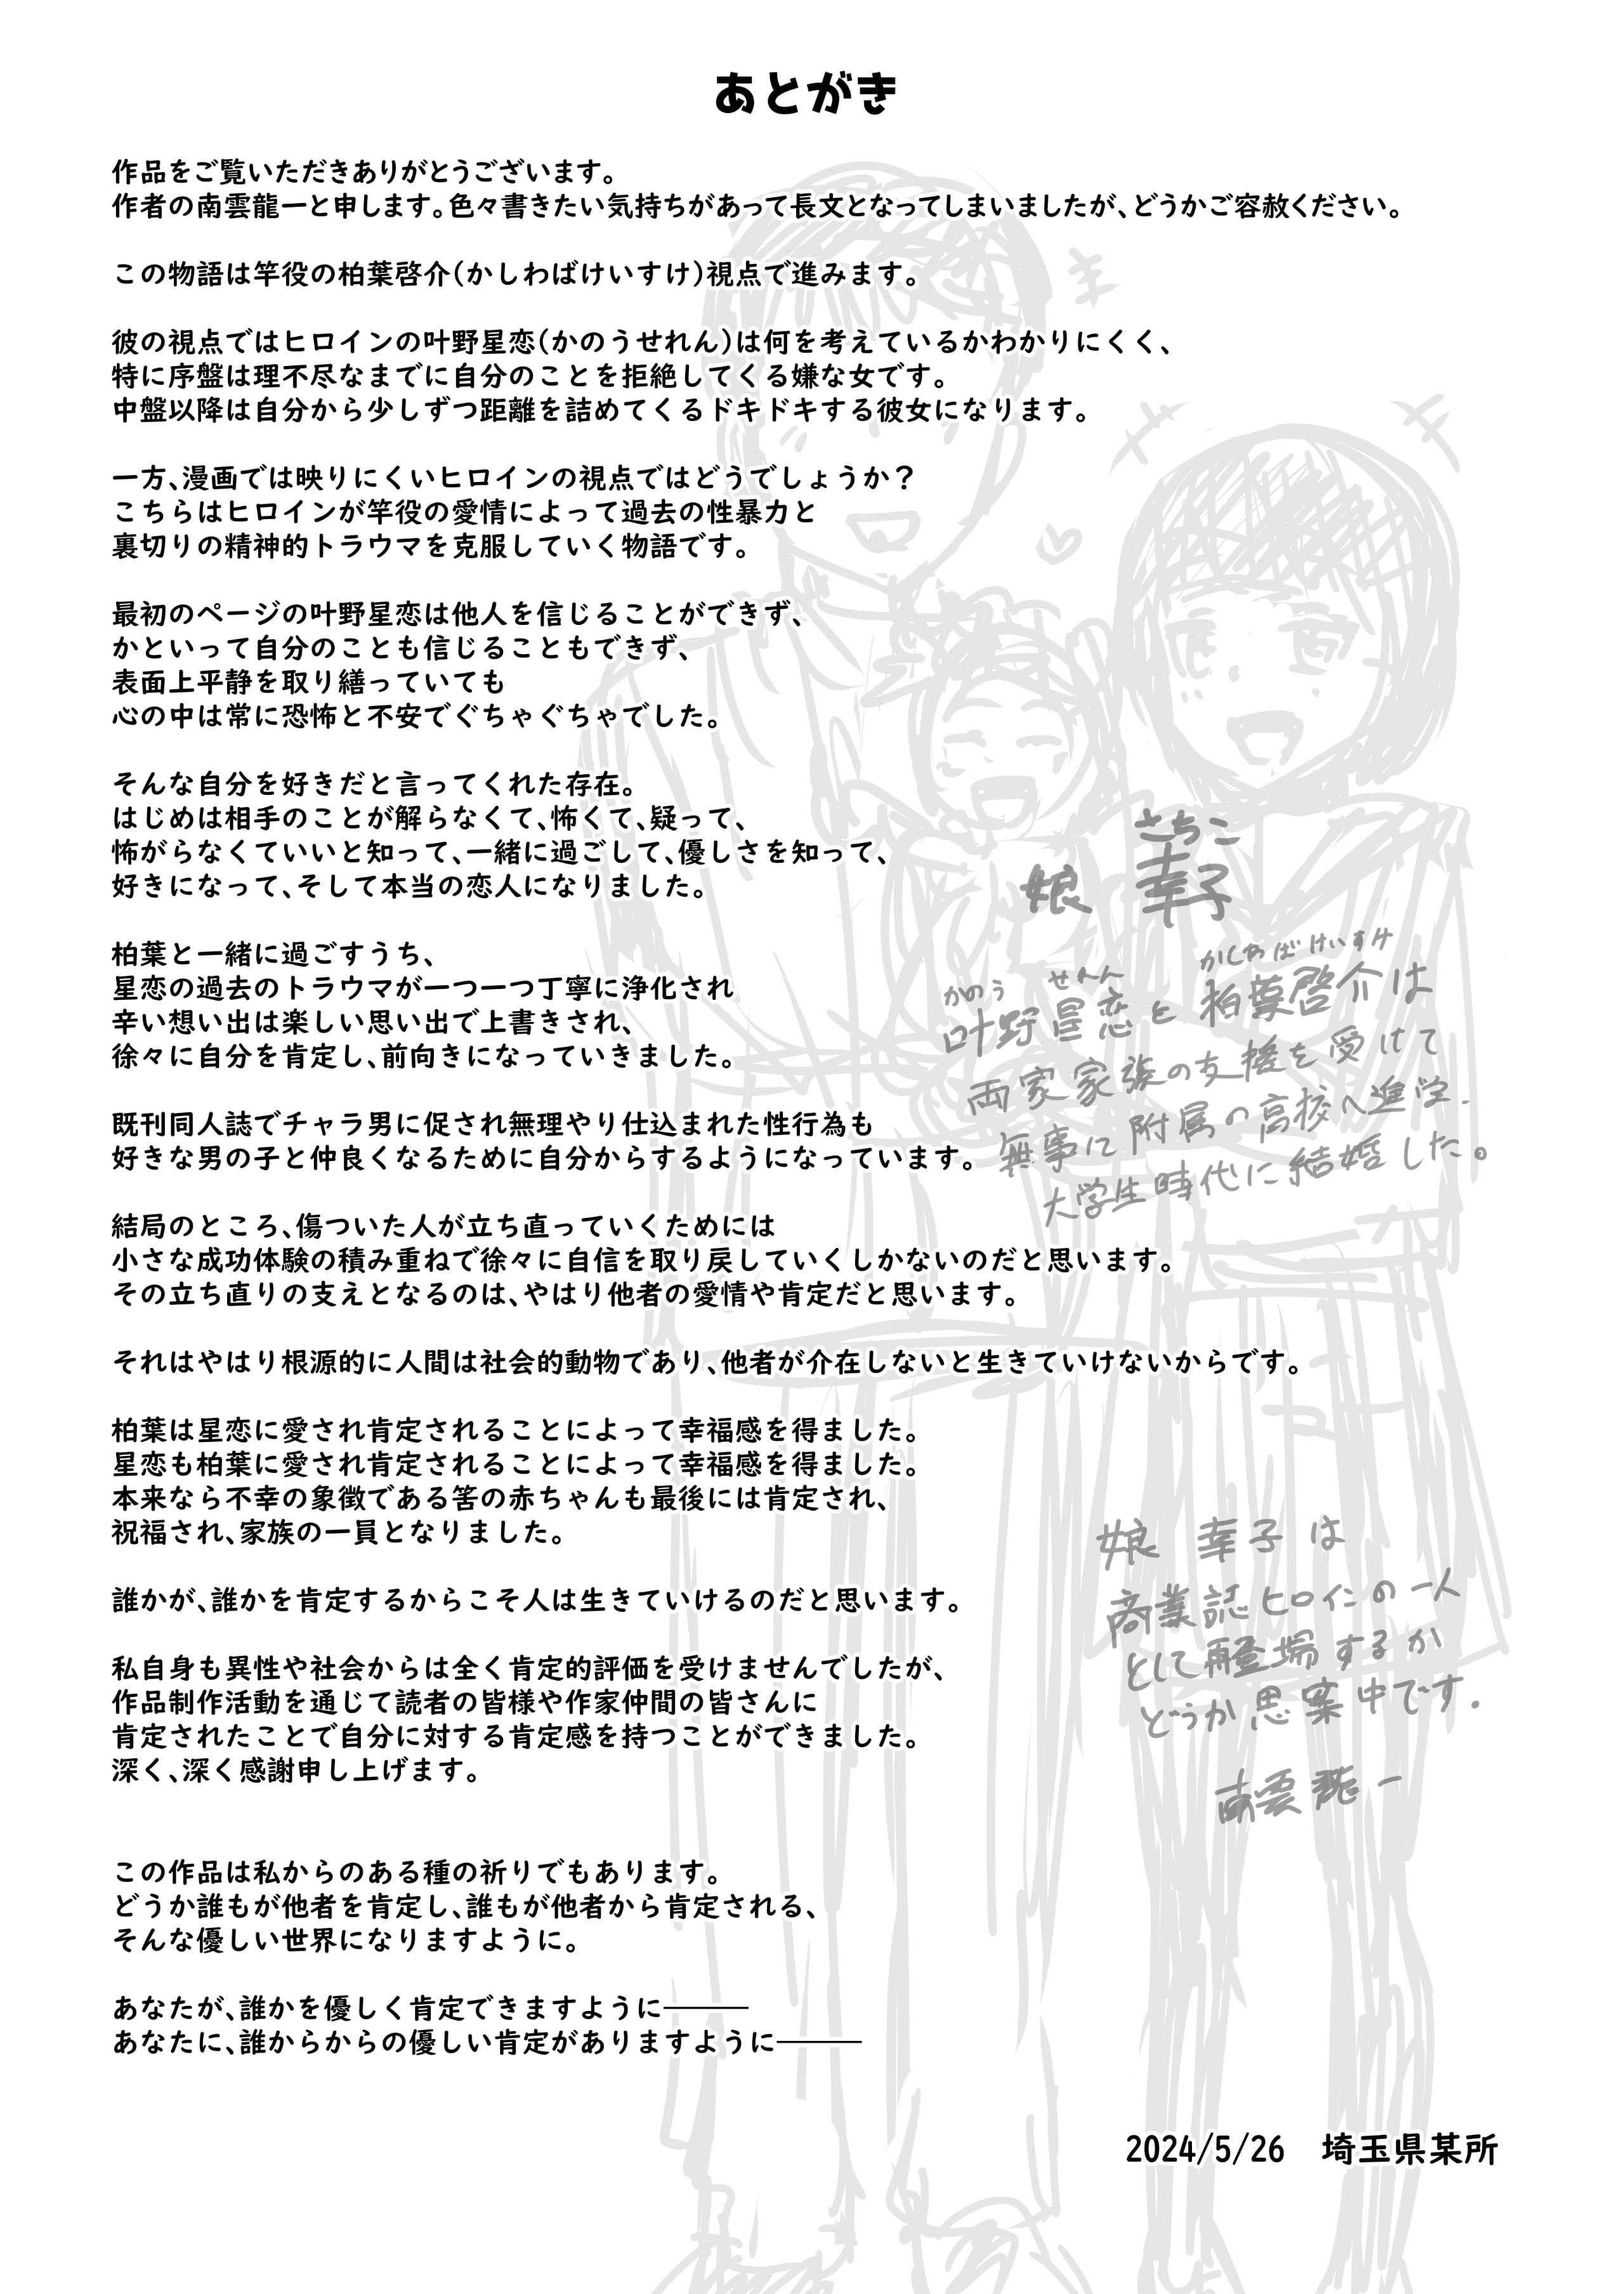 あとがき
作品をご覧いただきありがとうございます。
作者の南雲龍一と申します。色々書きたい気持ちがあって長文となってしまいましたが、どうかご容赦ください。
この物語は竿役の柏葉啓介(かしわばけいすけ)視点で進みます。
彼の視点ではヒロインの叶野星恋(かのうせれん)は何を考えているかわかりにくく、
特に序盤は理不尽なまでに自分のことを拒絶してくる嫌な女です。
中盤以降は自分から少しずつ距離を詰めてくるドキドキする彼女になります。
一方、漫画では映りにくいヒロインの視点ではどうでしょうか？
こちらはヒロインが竿役の愛情によって過去の性暴力と
裏切りの精神的トラウマを克服していく物語です。
最初のページの叶野星恋は他人を信じることができず、
かといって自分のことも信じることもできず、
表面上平静を取り繕っていても
心の中は常に恐怖と不安でぐちゃぐちゃでした。
そんな自分を好きだと言ってくれた存在。
はじめは相手のことが解らなくて、怖くて、疑って、
怖がらなくていいと知って、一緒に過ごして、優しさを知って、
好きになって、そして本当の恋人になりました。
柏葉と一緒に過ごすうち、
星恋の過去のトラウマが一つ一つ丁寧に浄化され
辛い想い出は楽しい思い出で上書きされ、
徐々に自分を肯定し、前向きになっていきました。
既刊同人誌でチャラ男に促され無理やり仕込まれた性行為も
好きな男の子と仲良くなるために自分からするようになっています。
結局のところ、傷ついた人が立ち直っていくためには
小さな成功体験の積み重ねで徐々に自信を取り戻していくしかないのだと思います。
その立ち直りの支えとなるのは、やはり他者の愛情や肯定だと思います。
それはやはり根源的に人間は社会的動物であり、他者が介在しないと生きていけないからです。
柏葉は星恋に愛され肯定されることによって幸福感を得ました。
星恋も柏葉に愛され肯定されることによって幸福感を得ました。
本来なら不幸の象徴である筈の赤ちゃんも最後には肯定され、
祝福され、家族の一員となりました。
誰かが、誰かを肯定するからこそ人は生きていけるのだと思います。
私自身も異性や社会からは全く肯定的評価を受けませんでしたが、
作品制作活動を通じて読者の皆様や作家仲間の皆さんに
肯定されたことで自分に対する肯定感を持つことができました。
深く、深く感謝申し上げます。
この作品は私からのある種の祈りでもあります。
どうか誰もが他者を肯定し、誰もが他者から肯定される、
そんな優しい世界になりますように。
あなたが、誰かを優しく肯定できますように―――
あなたに、誰からからの優しい肯定がありますように―――
さちこ
娘 幸子
かのう せれん かしわばけいすけ
叶野星恋と柏葉啓介は
両家家族の支援を受けて
無事に附属の高校へ進学.
大学生時代に結婚した。
娘 幸子は
商業誌ヒロインの一人
として再登場するか
どうか思案中です.
南雲龍一
2024/5/26 埼玉県某所